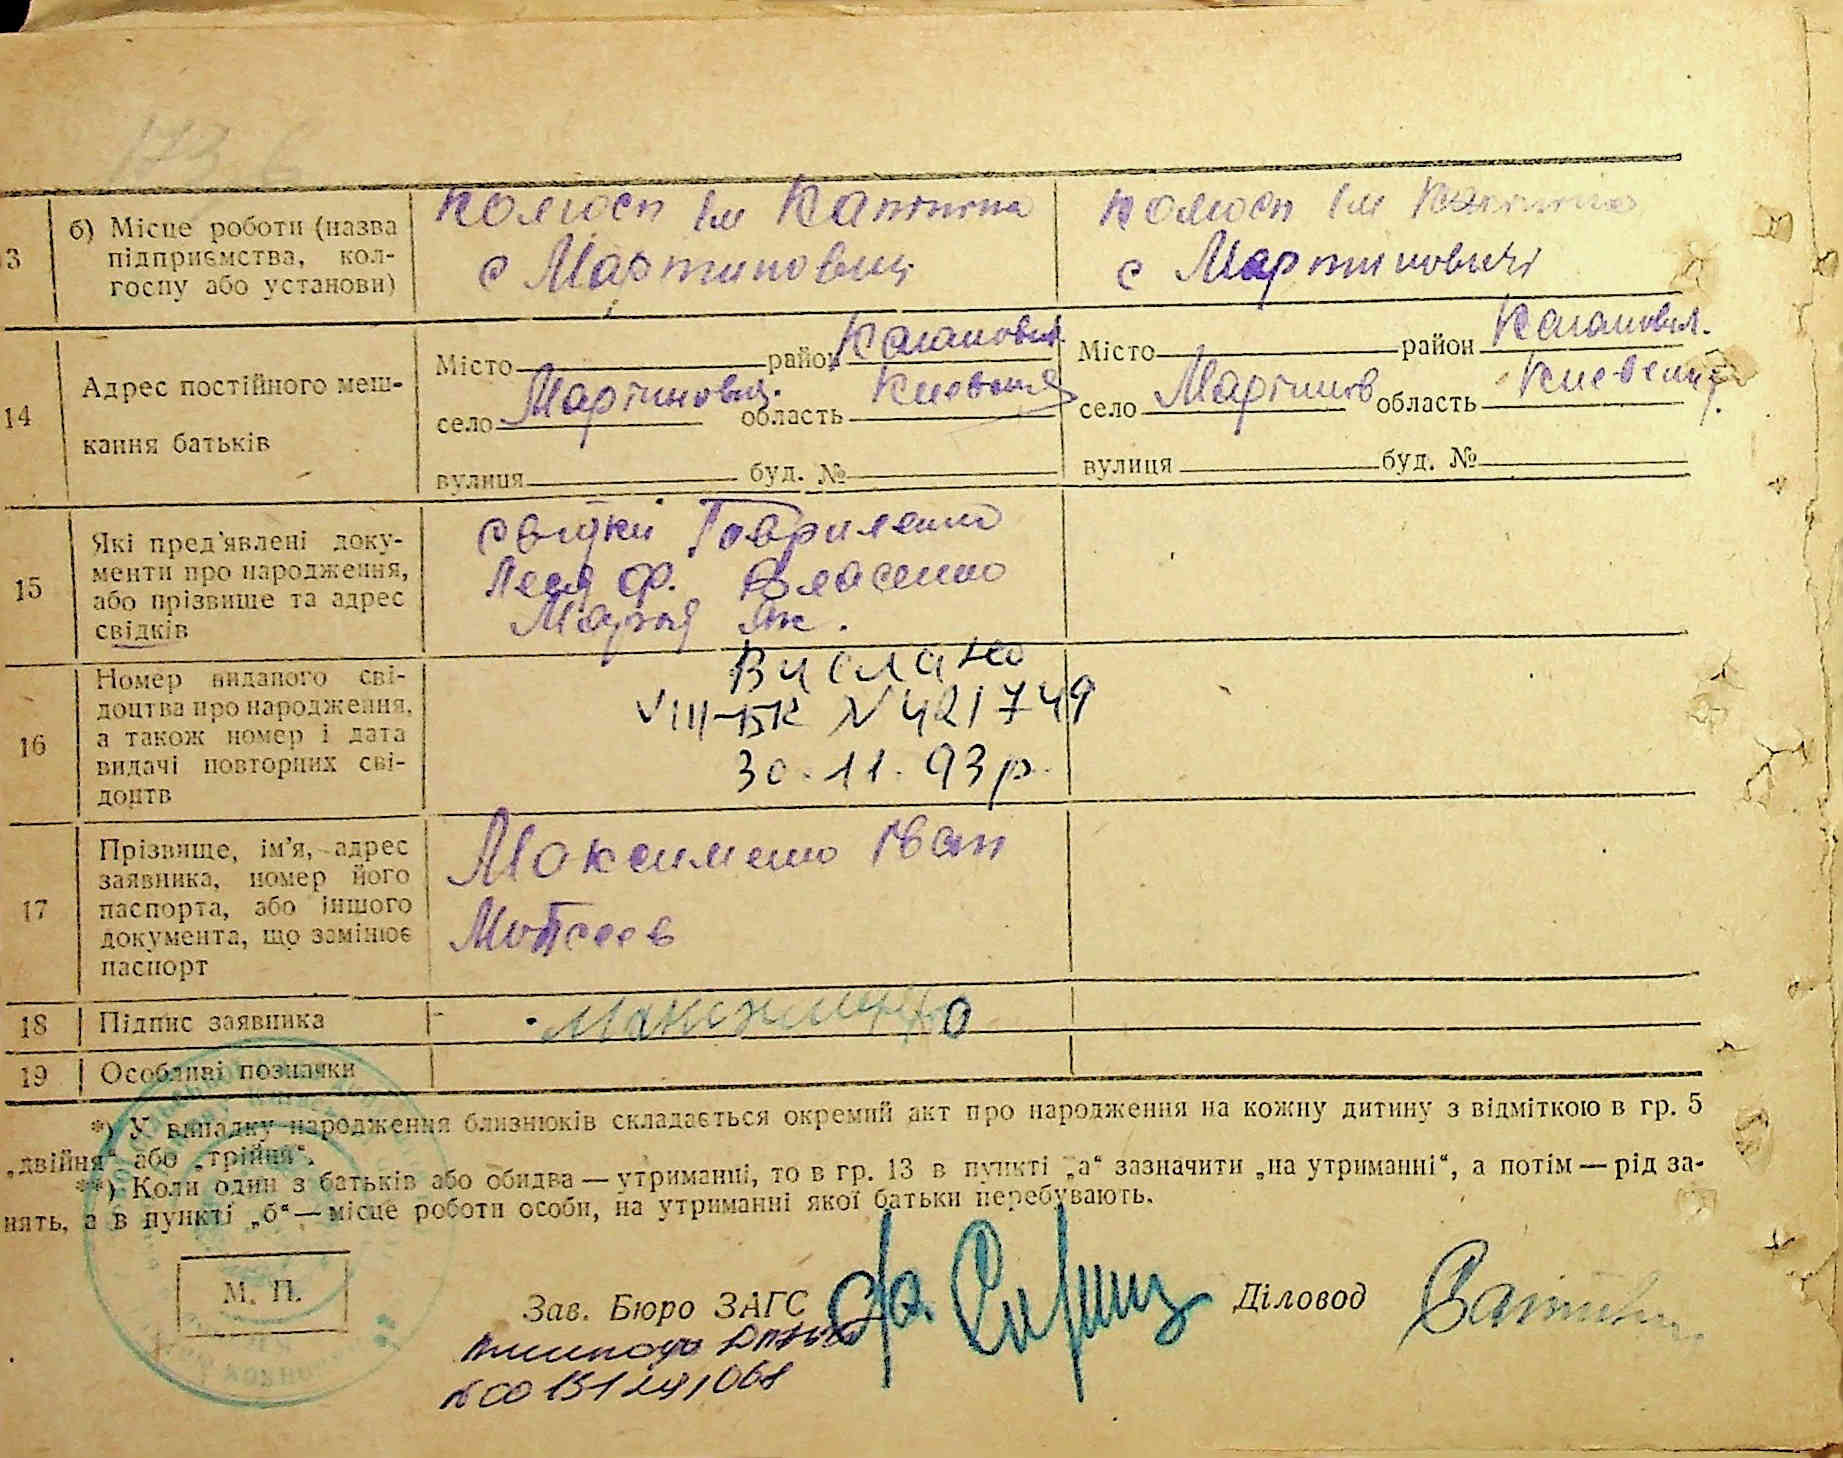 173
3
б) Місце роботи (назва
підприємства, кол-
госпу або установи)
колгосп ім Калініна
с Мартиновичі
колгосп ім Калініна
с Мартиновичі
14
Адрес постійного меш-
кання батьків
Місто район Кагановил.
село Мартинович. область Киевская
вулиця буд. №
Місто район Кагановил.
село Мартинов область
вулиця буд. №
15
Які пред'явлені доку-
менти про народження,
або прізвище та адрес
свідків
свідки Гавриленко
Леся Ф. Власенко
Марія Як.
16
Номер виданого сві-
доцтва про народження,
а також номер і дата
видачі повторних сві-
доцтв
Вислано
VIII-БК N 421749
30.11.93р.
17
Прізвище, ім'я, адрес
заявника, номер його
паспорта, або іншого
документа, що замінює
паспорт
Максименко Іван
18
Підпис заявника
Максименко
19
Особливі позначки
*) У випадку народження близнюків складається окремий акт про народження на кожну дитину з відміткою в гр. 5
„двійня“ або „трійня“.
**) Коли один з батьків або обидва — утриманці, то в гр. 13 в пункті „а“ зазначити „на утриманні“, а потім — рід за-
нять, а в пункті „б“ — місце роботи особи, на утриманні якої батьки перебувають.
М. П.
Зав. Бюро ЗАГС
Діловод